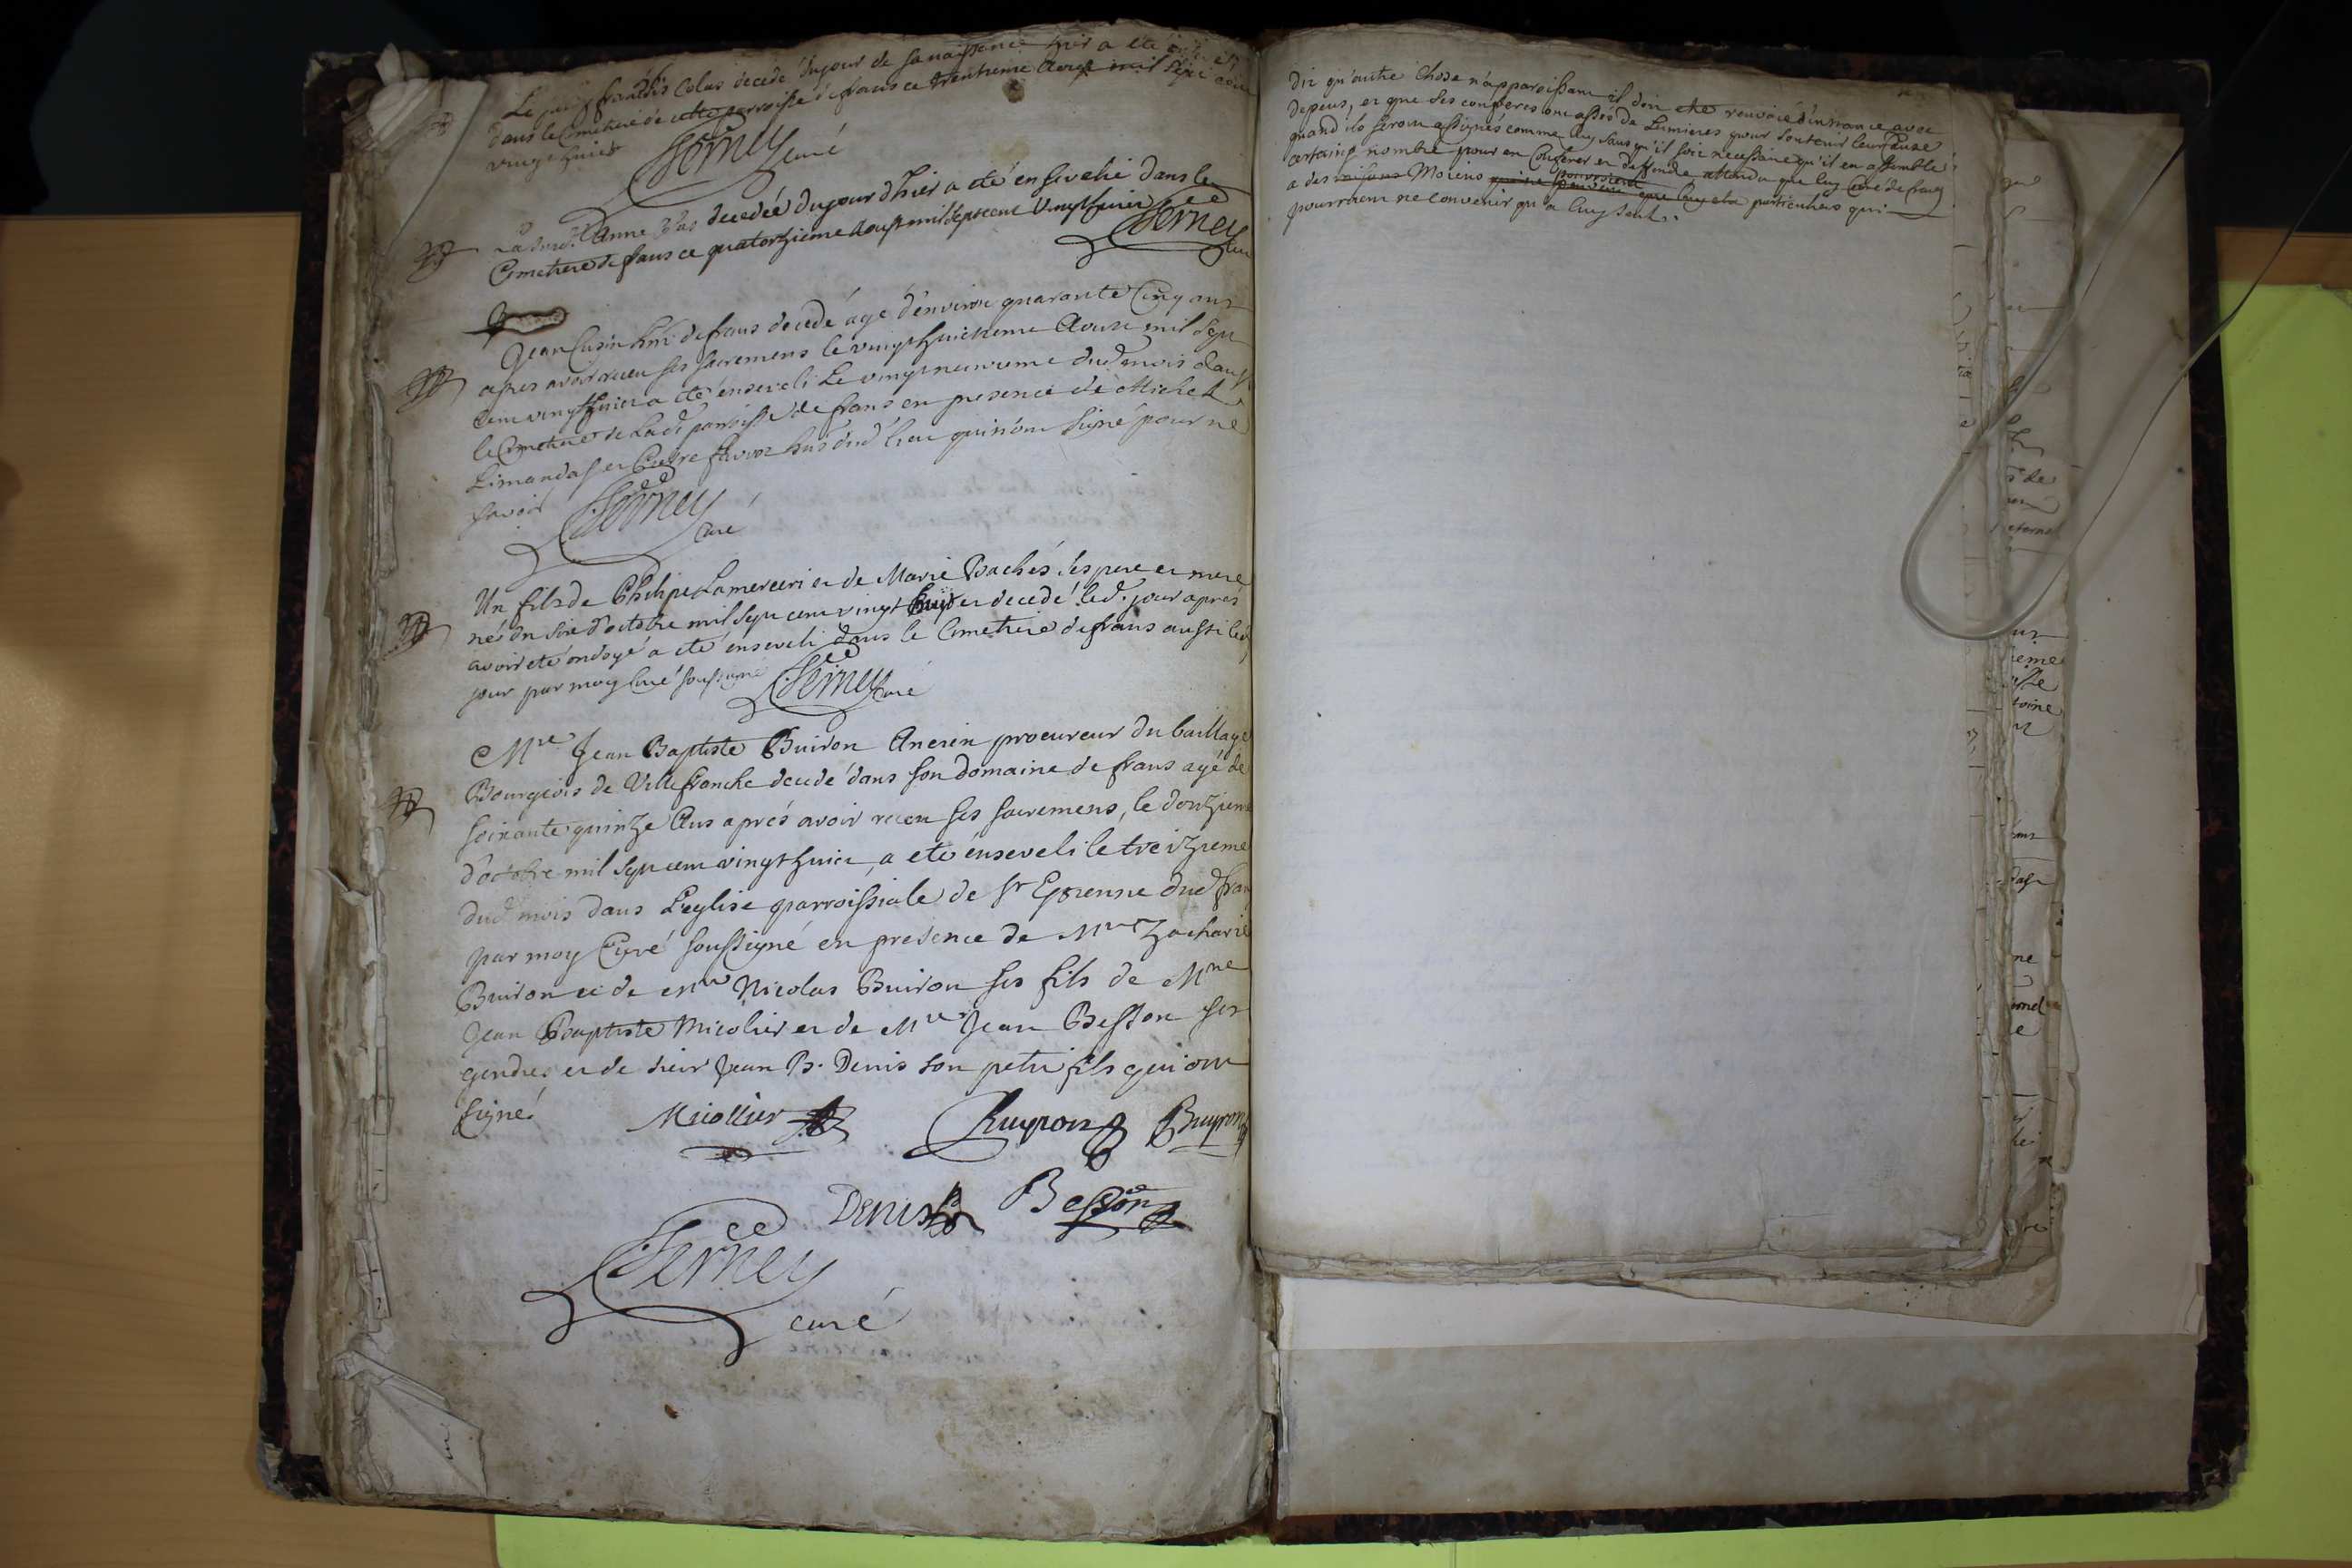 françois Colas decedé du jour de sa naissance hier a eté
dans le Cimetiere de cette parroisse de frans ce trentieme
vingt huict
Serney curé
Anne decedée du jour d'hier a eté enseveli dans le
Cimetiere de frans ce quatorzieme Aoust mil sept cent vingt huict Serney
Jean Cusin de frans decedé agé d'environ quarante Cinq ans
apres avoir receu ses sacremens le vingt huictieme Aoust mil sept
cent vingt huict a eté enseveli Le vingt neuvieme dud mois dans
le Cimetiere de Lad parroisse de frans en presence de Michel
Limandas et Pierre dud lieu qui n'ont signé pour ne
savoir Serney
curé
Un fils de Philipe Lamercerie et de Marie Bachés ses pere et mere
né du sixe d'octobre mil sept cent vingt huit et decedé led. jour aprés
avoir eté ondoyé a eté enseveli dans le Cimetiere de frans aussi led
jour par moy Curé soussigné Serney Curé
Mre Jean Baptiste Buiron Ancien procureur du baillage
Bourgeois de Villefranche decedé dans son domaine de frans agé de
soixante quinze Ans aprés avoir receu ses sacremens, le douzieme
d'octobre mil sept cent vingt huict, a eté enseveli le treizieme
dud mois dans L'eglise parroissiale de St Etienne dud frans
par moy Curé soussigné en presence de Mre Zacharie
Buiron et de Mre Nicolas Buiron ses fils de Mre
Jean Baptiste Micolier et de Mre Jean Besson ses
gendres et de sieur Jean B. Denis son petit fils qui ont
signé Micollier Buyron Buyron
Denis Besson
Serney
curé
Dit qu'autre Chose n'apparoissant il doit etre renvoié d'instance avec
depens, et que ses confreres ont assés de Lumieres pour soutenir leur Cause
quand ils seront assignés comme luy sans qu'il soit necessaire qu'il en assemble
certaing nombre pour en Conferer et deffendre attendu que luy Curé de frans
a des raisons Moiens particuliers qui
pourroient ne convenir qu'a luy seul.